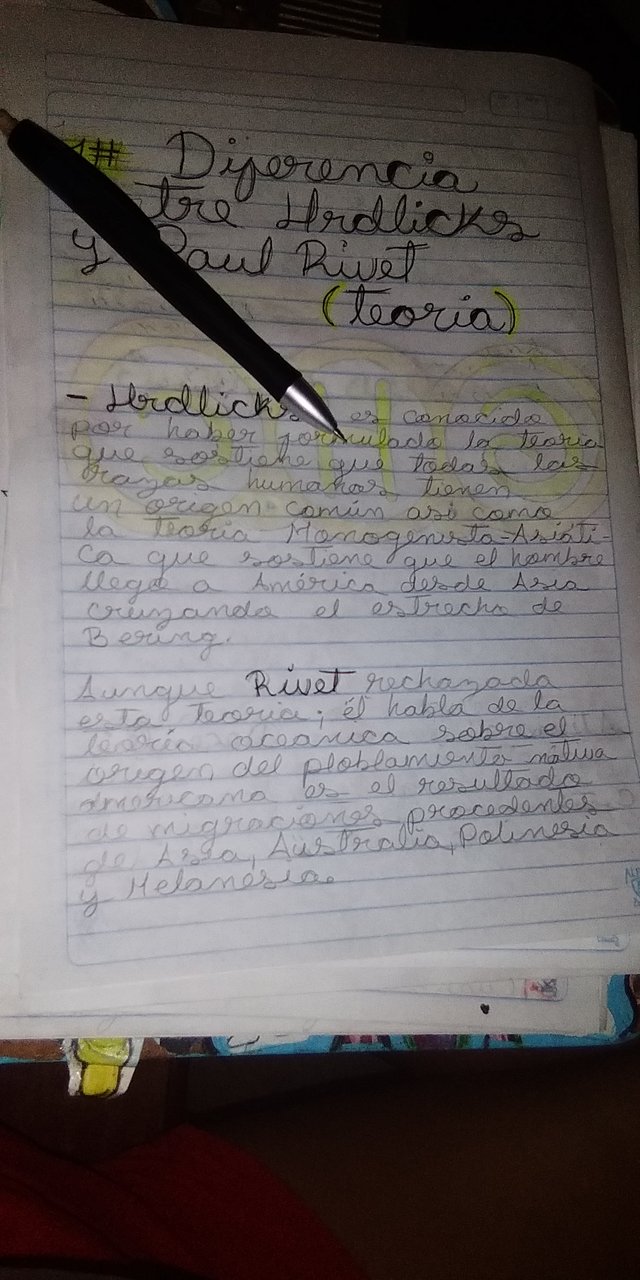 1# Diferencia
tre Hrdlicks
y Paul Rivet
(teoria)
- Hrdlicks es conocido
por haber formulado la teoria
que sostiene que todas las
razas humanas tienen
un origen común asi como
la teoria Monogenista-Asiáti-
ca que sostiene que el hombre
llego a América desde Asia
cruzando el estrecho de
Bering.
Aunque Rivet rechazada
esta teoria; él habla de la
teoría oceánica sobre el
origen del ploblamiento nativa
americana es el resultado
de migraciones procedentes
de Asia, Australia, Polinesia
y Melanesia.